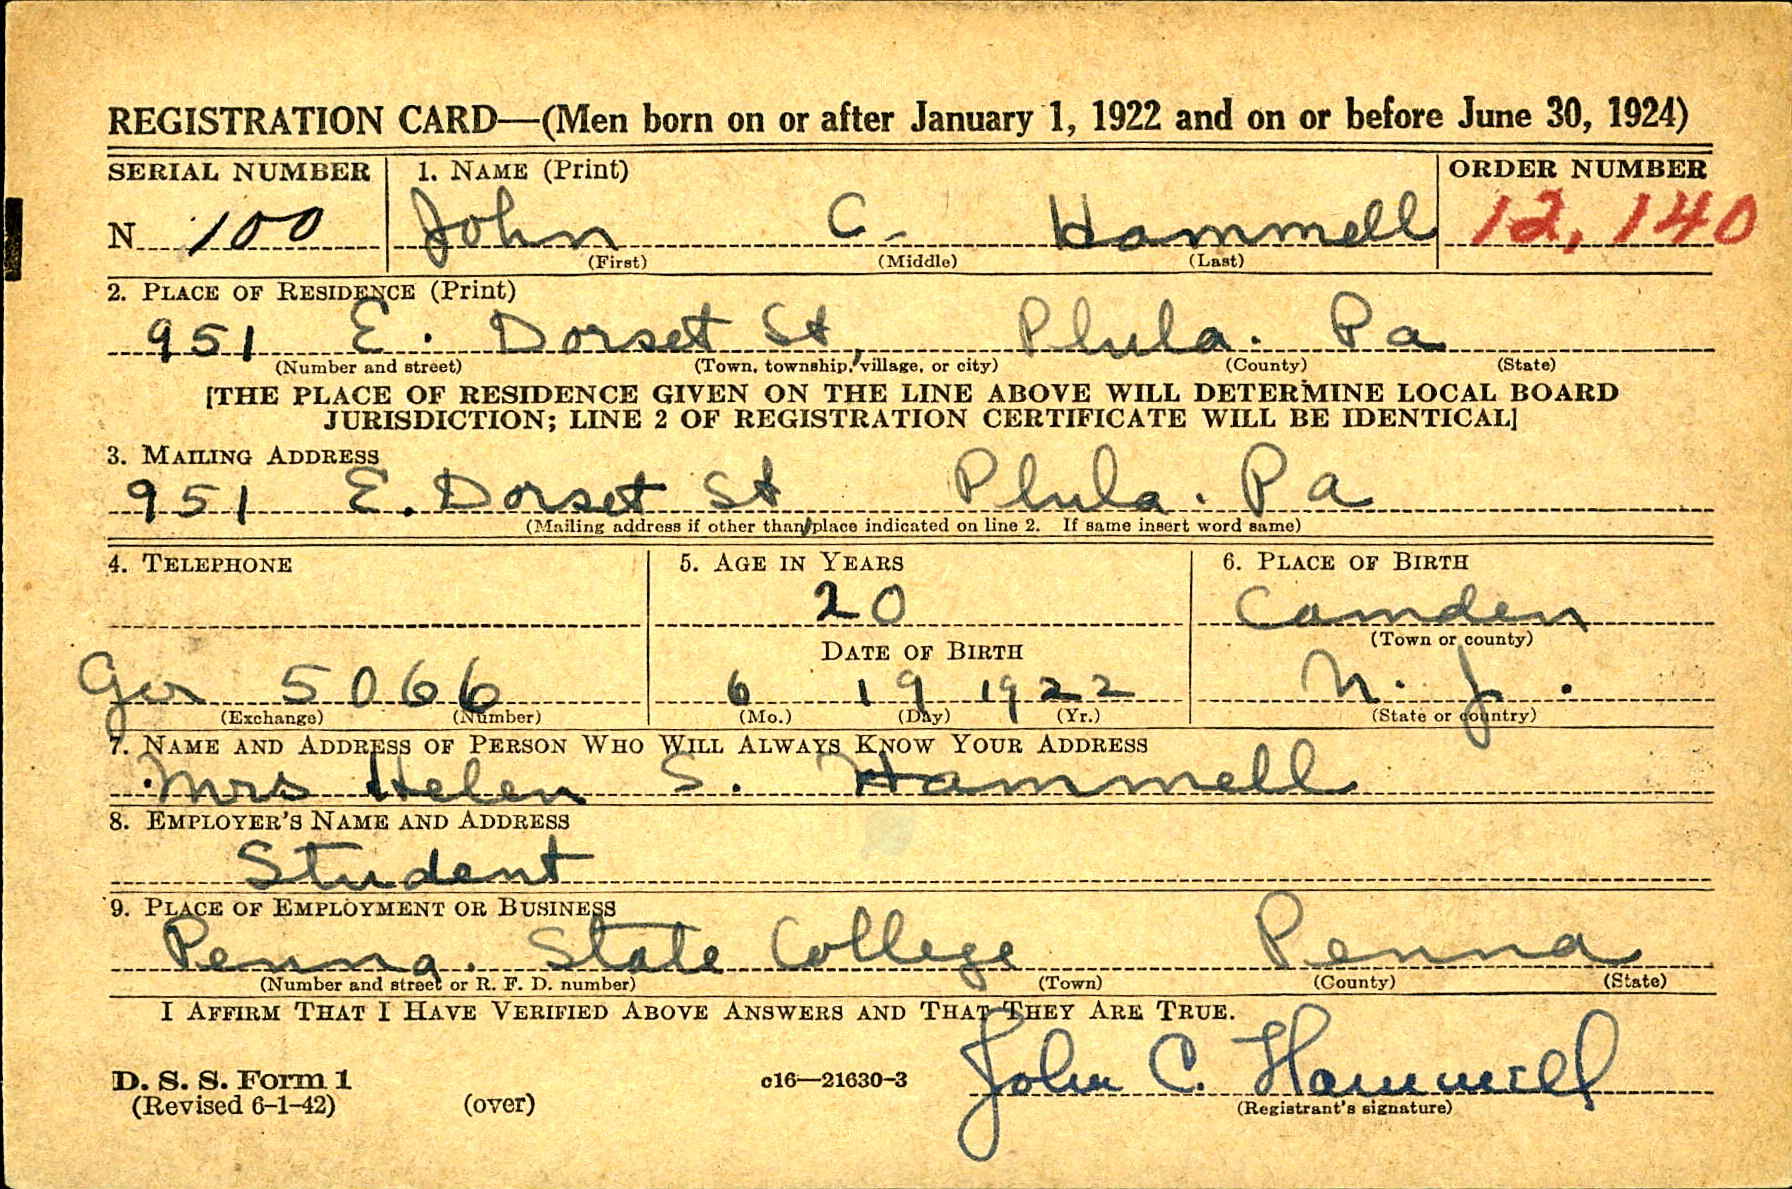 REGISTRATION CARD—(Men born on or after January 1, 1922 and on or before June 30, 1924)
SERIAL NUMBER 1. NAME (Print) ORDER NUMBER
N 100 John C. Hammell 12,140
(First) (Middle) (Last)
2. PLACE OF RESIDENCE (Print)
951 E. Dorset St, Phila. Pa
(Number and street) (Town, township, village, or city) (County) (State)
[THE PLACE OF RESIDENCE GIVEN ON THE LINE ABOVE WILL DETERMINE LOCAL BOARD
JURISDICTION; LINE 2 OF REGISTRATION CERTIFICATE WILL BE IDENTICAL]
3. MAILING ADDRESS
951 E. Dorset St Phila. Pa
(Mailing address if other than place indicated on line 2. If same insert word same)
4. TELEPHONE 5. AGE IN YEARS 6. PLACE OF BIRTH
20 Camden
DATE OF BIRTH (Town or county)
5066 6 19 1922 N. J.
(Exchange) (Number) (Mo.) (Day) (Yr.) (State or country)
7. NAME AND ADDRESS OF PERSON WHO WILL ALWAYS KNOW YOUR ADDRESS
Mrs Helen S. Hammell
8. EMPLOYER'S NAME AND ADDRESS
Student
9. PLACE OF EMPLOYMENT OR BUSINESS
Penna. State College Penna
(Number and street or R. F. D. number) (Town) (County) (State)
I AFFIRM THAT I HAVE VERIFIED ABOVE ANSWERS AND THAT THEY ARE TRUE.
D. S. S. Form 1 c16—21630-3 John C. Hammell
(Revised 6-1-42) (over) (Registrant's signature)